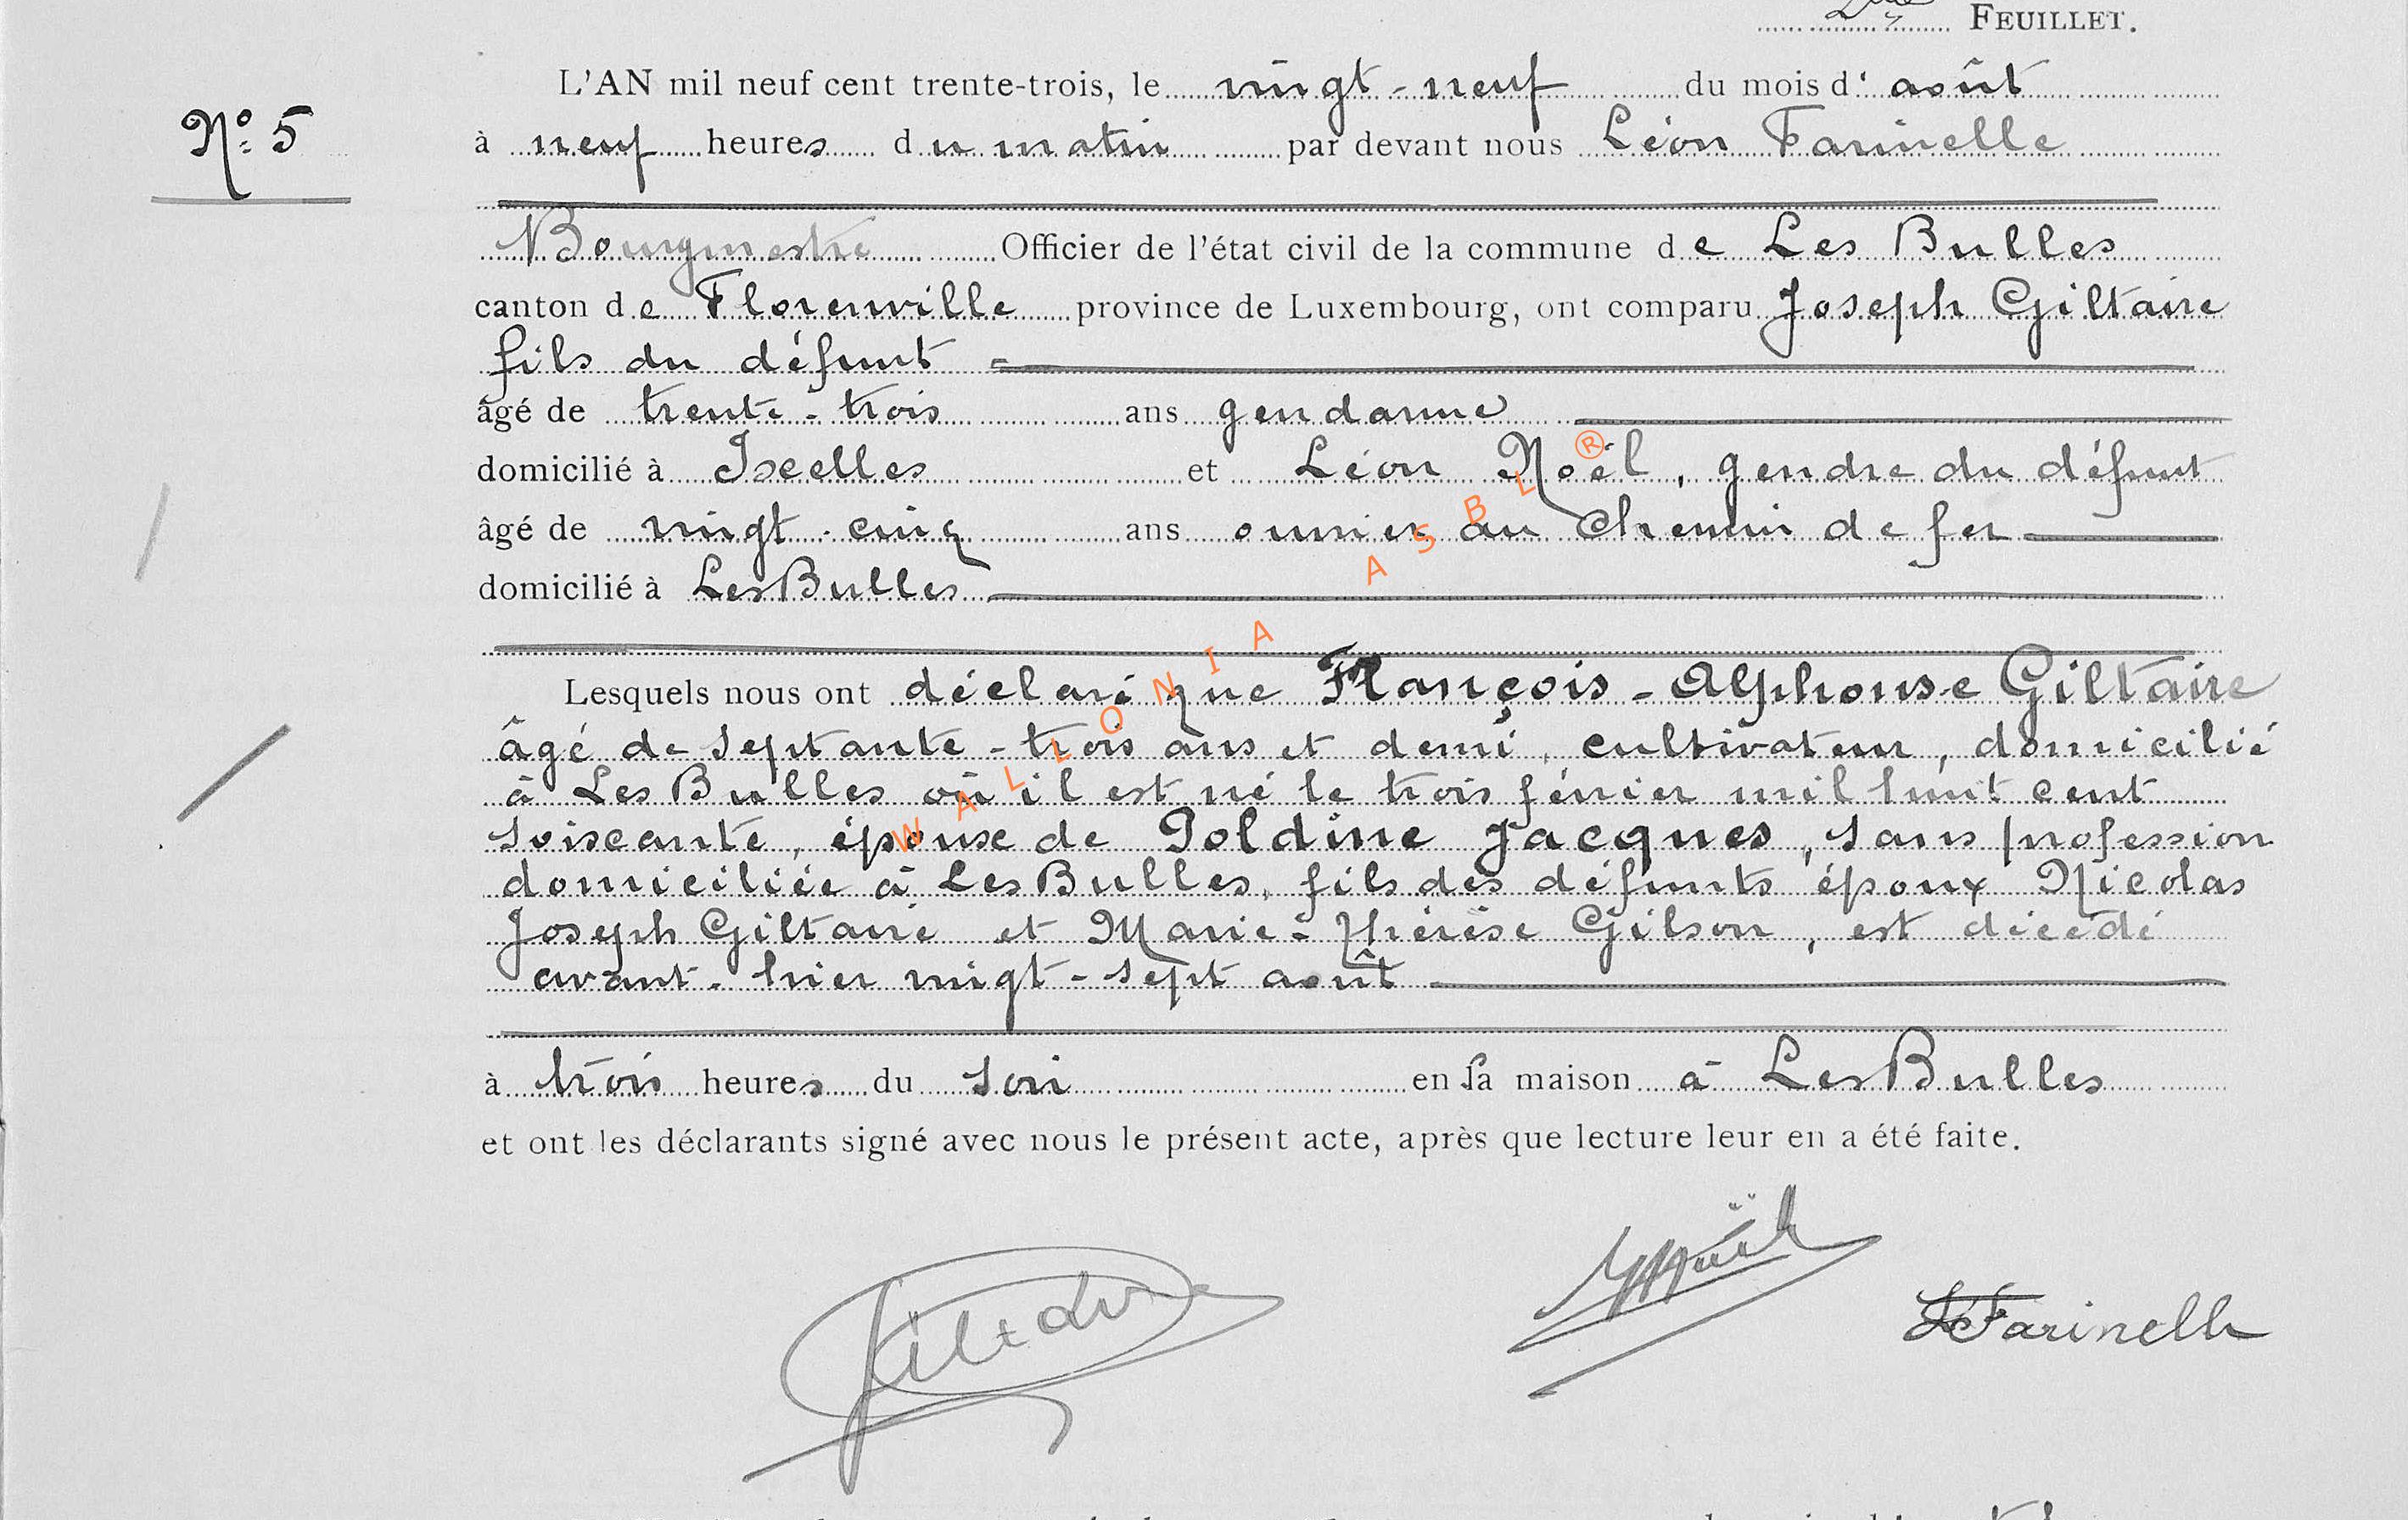 2me FEUILLET.
L'AN mil neuf cent trente-trois, le vingt-neuf du mois d'août
N° 5
à neuf heures du matin par devant nous Léon Farinelle
Bourgmestre Officier de l'état civil de la commune de Les Bulles
canton de Florenville province de Luxembourg, ont comparu Joseph Giltaire
fils du défunt
âgé de trente-trois ans gendarme
domicilié à Ixelles et Léon Noël, gendre du défunt
âgé de vingt-cinq ans ouvrier au Chemin de fer
domicilié à Les Bulles
Lesquels nous ont déclaré que François-Alphonse Giltaire
âgé de septante-trois ans et demi, cultivateur, domicilié
à Les Bulles où il est né le trois février mil huit cent
soixante, épouse de Poldine Jacques, sans profession
domiciliée à Les Bulles, fils des défunts époux Nicolas
Joseph Giltaire et Marie-Thérèse Gilson, est décédé
avant-hier vingt-sept août
à trois heures du soir en sa maison à Les Bulles
et ont les déclarants signé avec nous le présent acte, après que lecture leur en a été faite.
Giltaire
LNoël
LFarinelle
WALLONIA ASBL ®